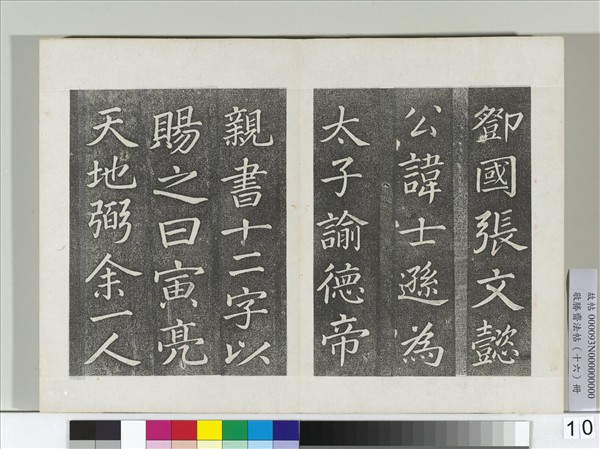 鄧國張文懿
公諱士遜為
太子諭德帝
親書十二字以
賜之曰寅亮
天地弼余一人
故帖 000093N000000000
敬勝齋法帖(十六)冊
10